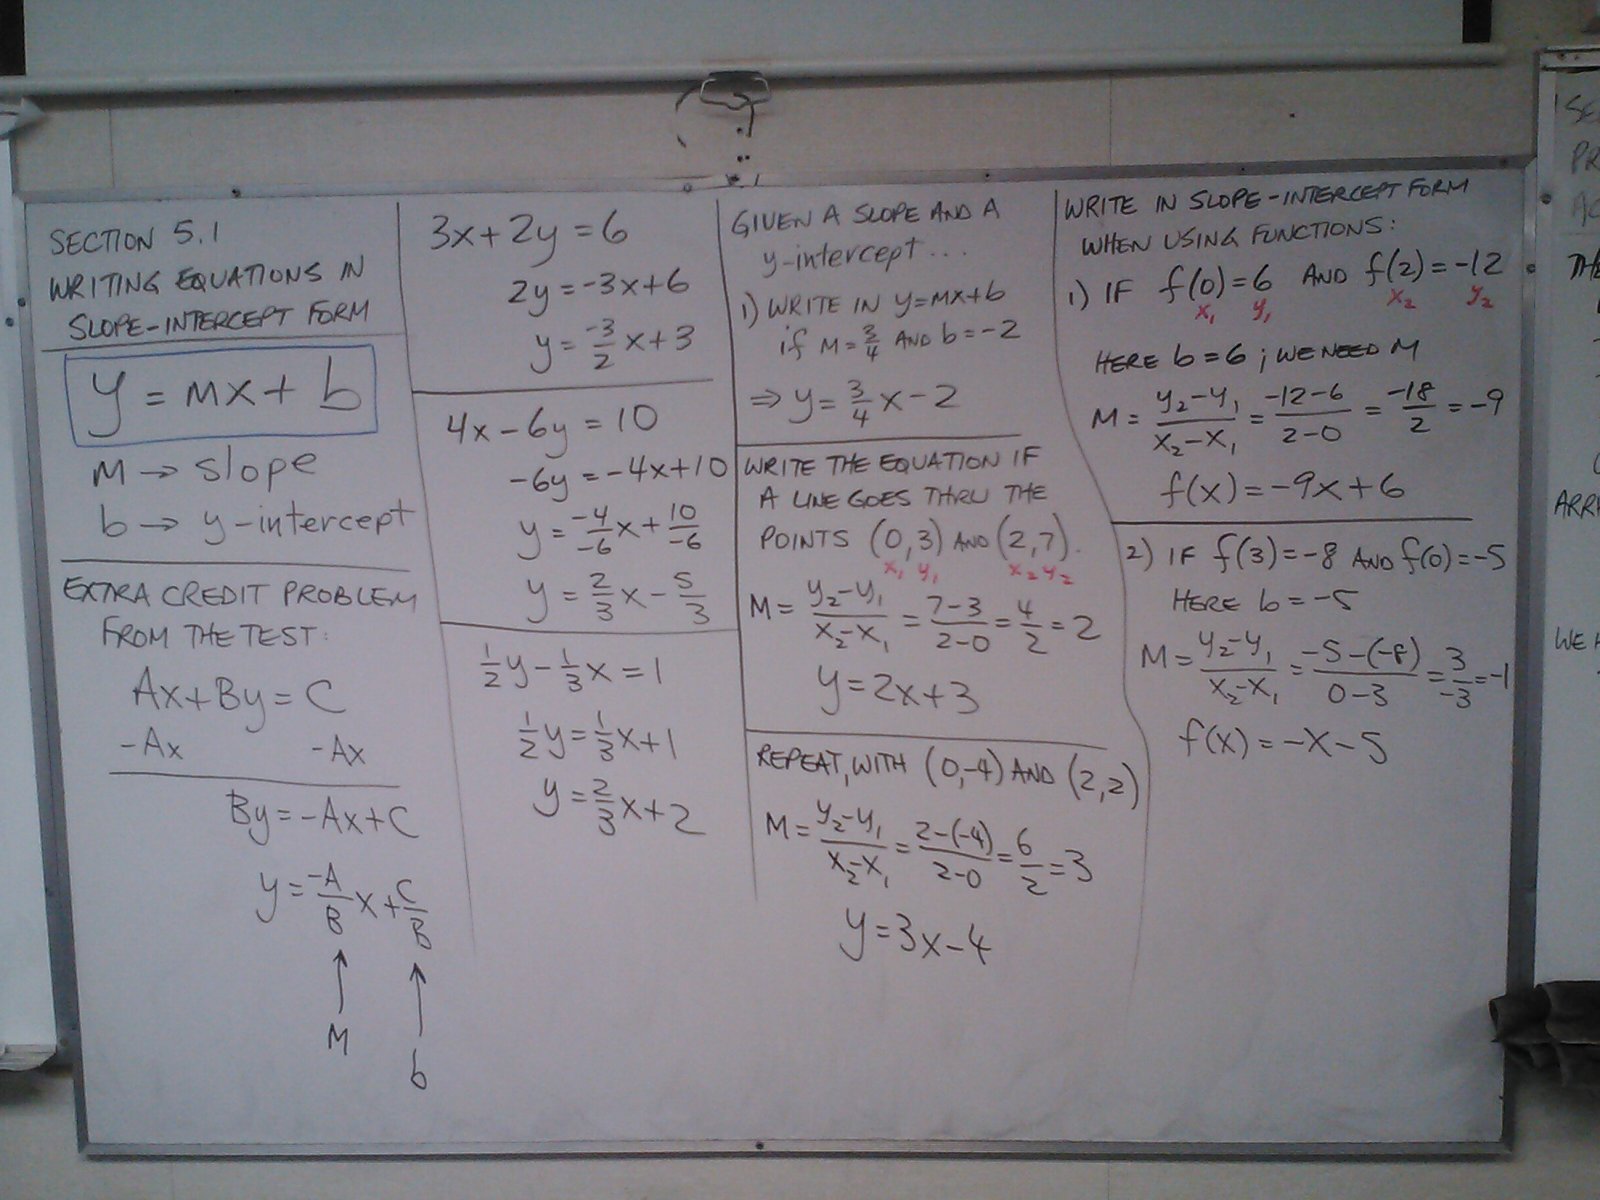 SECTION 5.1
WRITING EQUATIONS IN
SLOPE-INTERCEPT FORM
y = mx + b
M → slope
b → y-intercept
EXTRA CREDIT PROBLEM
FROM THE TEST:
Ax+By=C
-Ax -Ax
By=-Ax+C
y=-A/B x+C/B
M
b
3x+2y=6
2y=-3x+6
y=-3/2 x+3
4x-6y=10
-6y=-4x+10
y=-4/-6 x+10/-6
y=2/3 x-5/3
1/2 y-1/3 x=1
1/2 y=1/3 x+1
y=2/3 x+2
GIVEN A SLOPE AND A
y-intercept...
1) WRITE IN y=mx+b
if M=3/4 AND b=-2
⇒ y=3/4 x-2
WRITE THE EQUATION IF
A LINE GOES THRU THE
POINTS (0,3) AND (2,7).
x₁ y₁ x₂ y₂
M=y₂-y₁/x₂-x₁=7-3/2-0=4/2=2
y=2x+3
REPEAT, WITH (0,-4) AND (2,2)
M=y₂-y₁/x₂-x₁=2-(-4)/2-0=6/2=3
y=3x-4
WRITE IN SLOPE-INTERCEPT FORM
WHEN USING FUNCTIONS:
1) IF f(0)=6 AND f(2)=-12
x₁ y₁ x₂ y₂
HERE b=6; WE NEED M
M=y₂-y₁/x₂-x₁=-12-6/2-0=-18/2=-9
f(x)=-9x+6
2) IF f(3)=-8 AND f(0)=-5
HERE b=-5
M=y₂-y₁/x₂-x₁=-5-(-8)/0-3=3/-3=-1
f(x)=-x-5